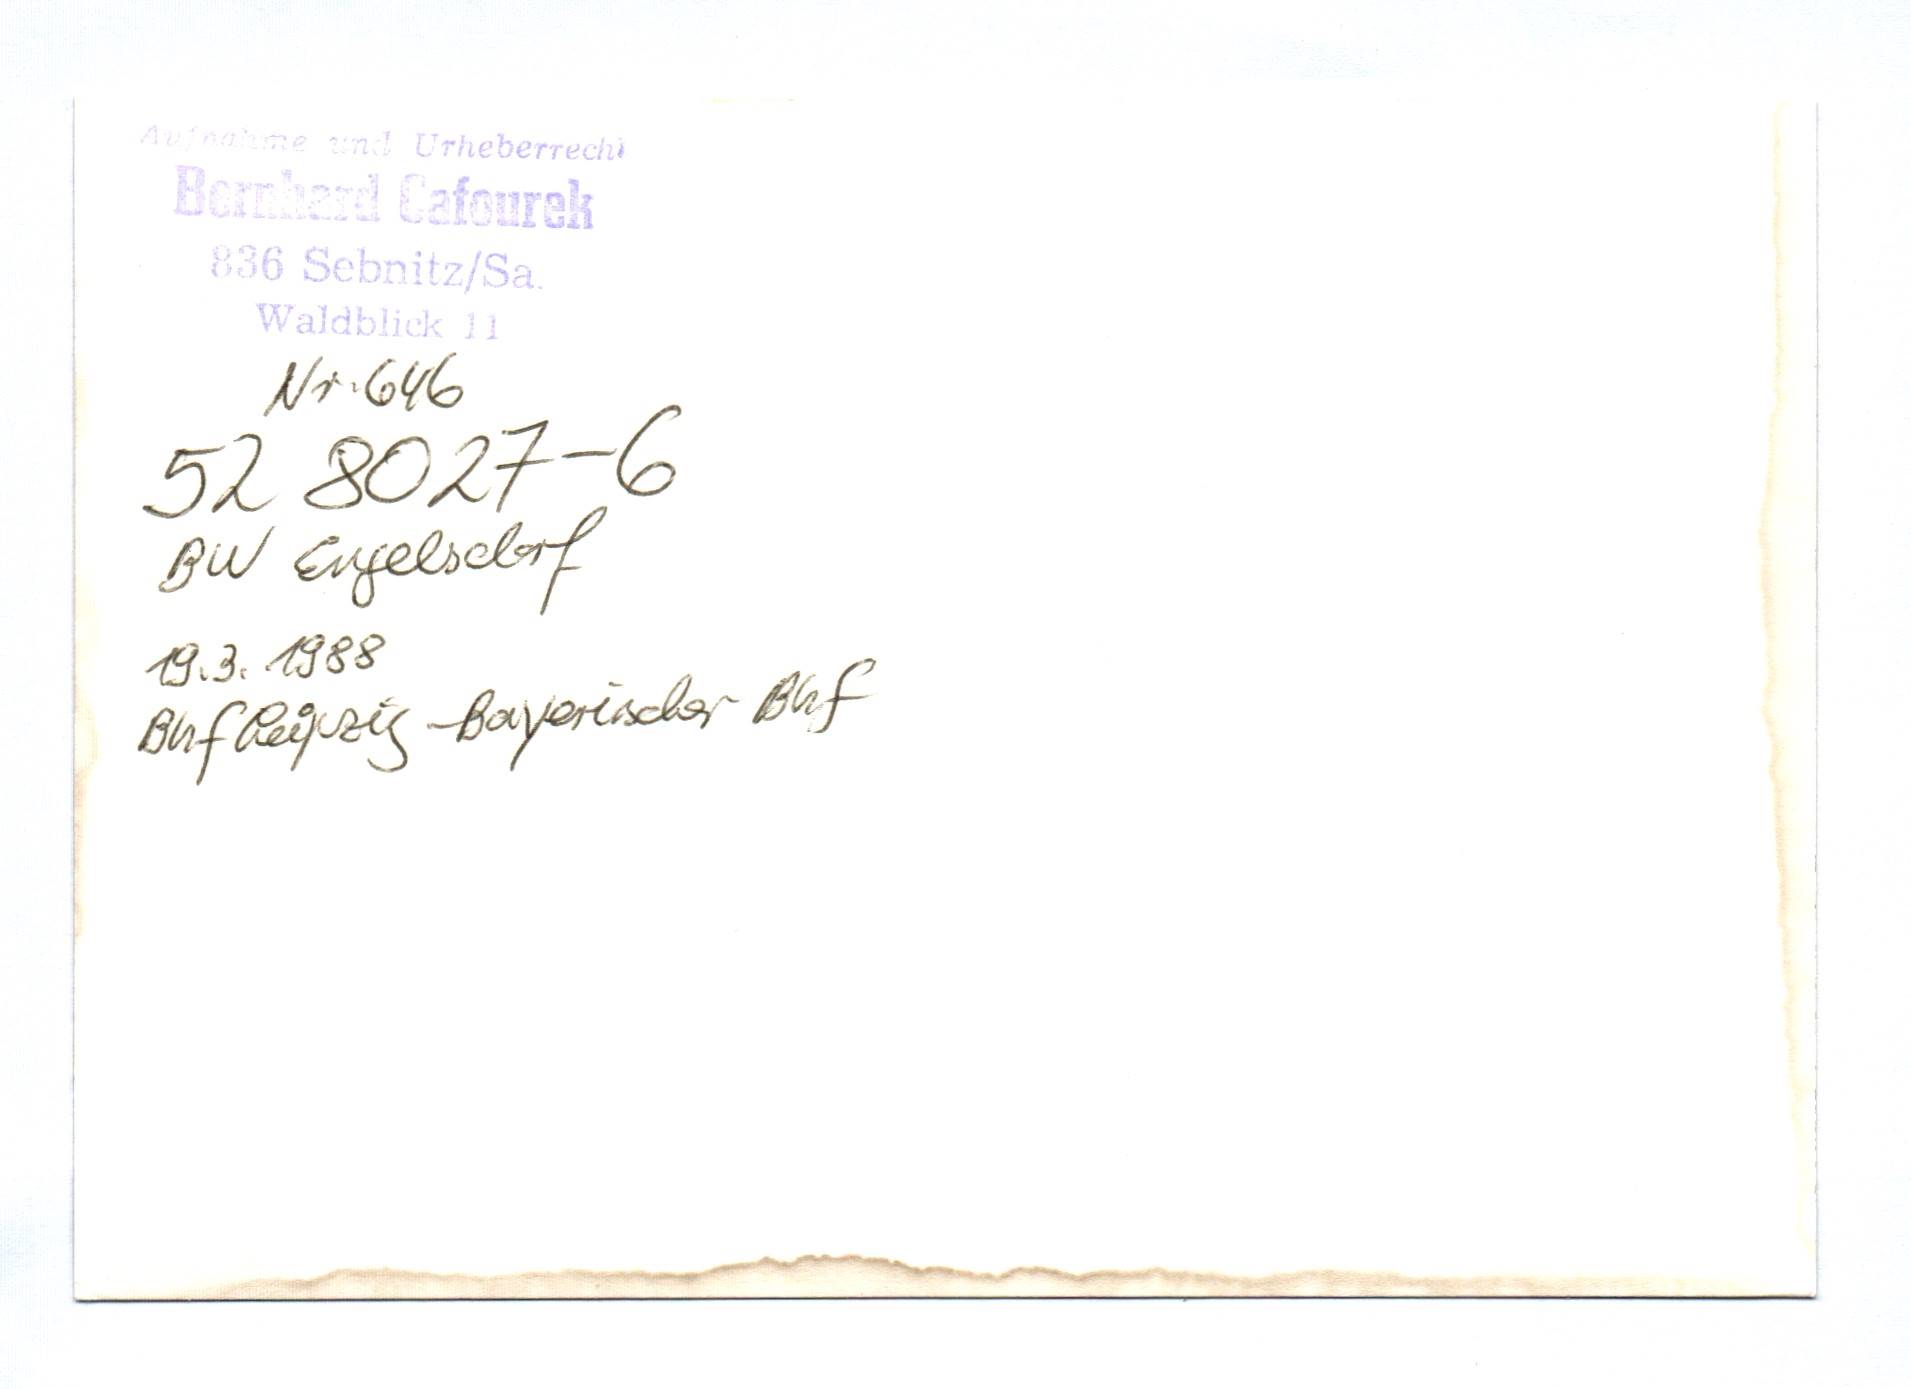 Aufnahme und Urheberrecht
Bernhard Cafourek
836 Sebnitz/Sa.
Waldblick 11
Nr. 646
52 8027-6
BW Engelsdorf
19.3. 1988
Bhf Leipzig-Bayerischer Bhf